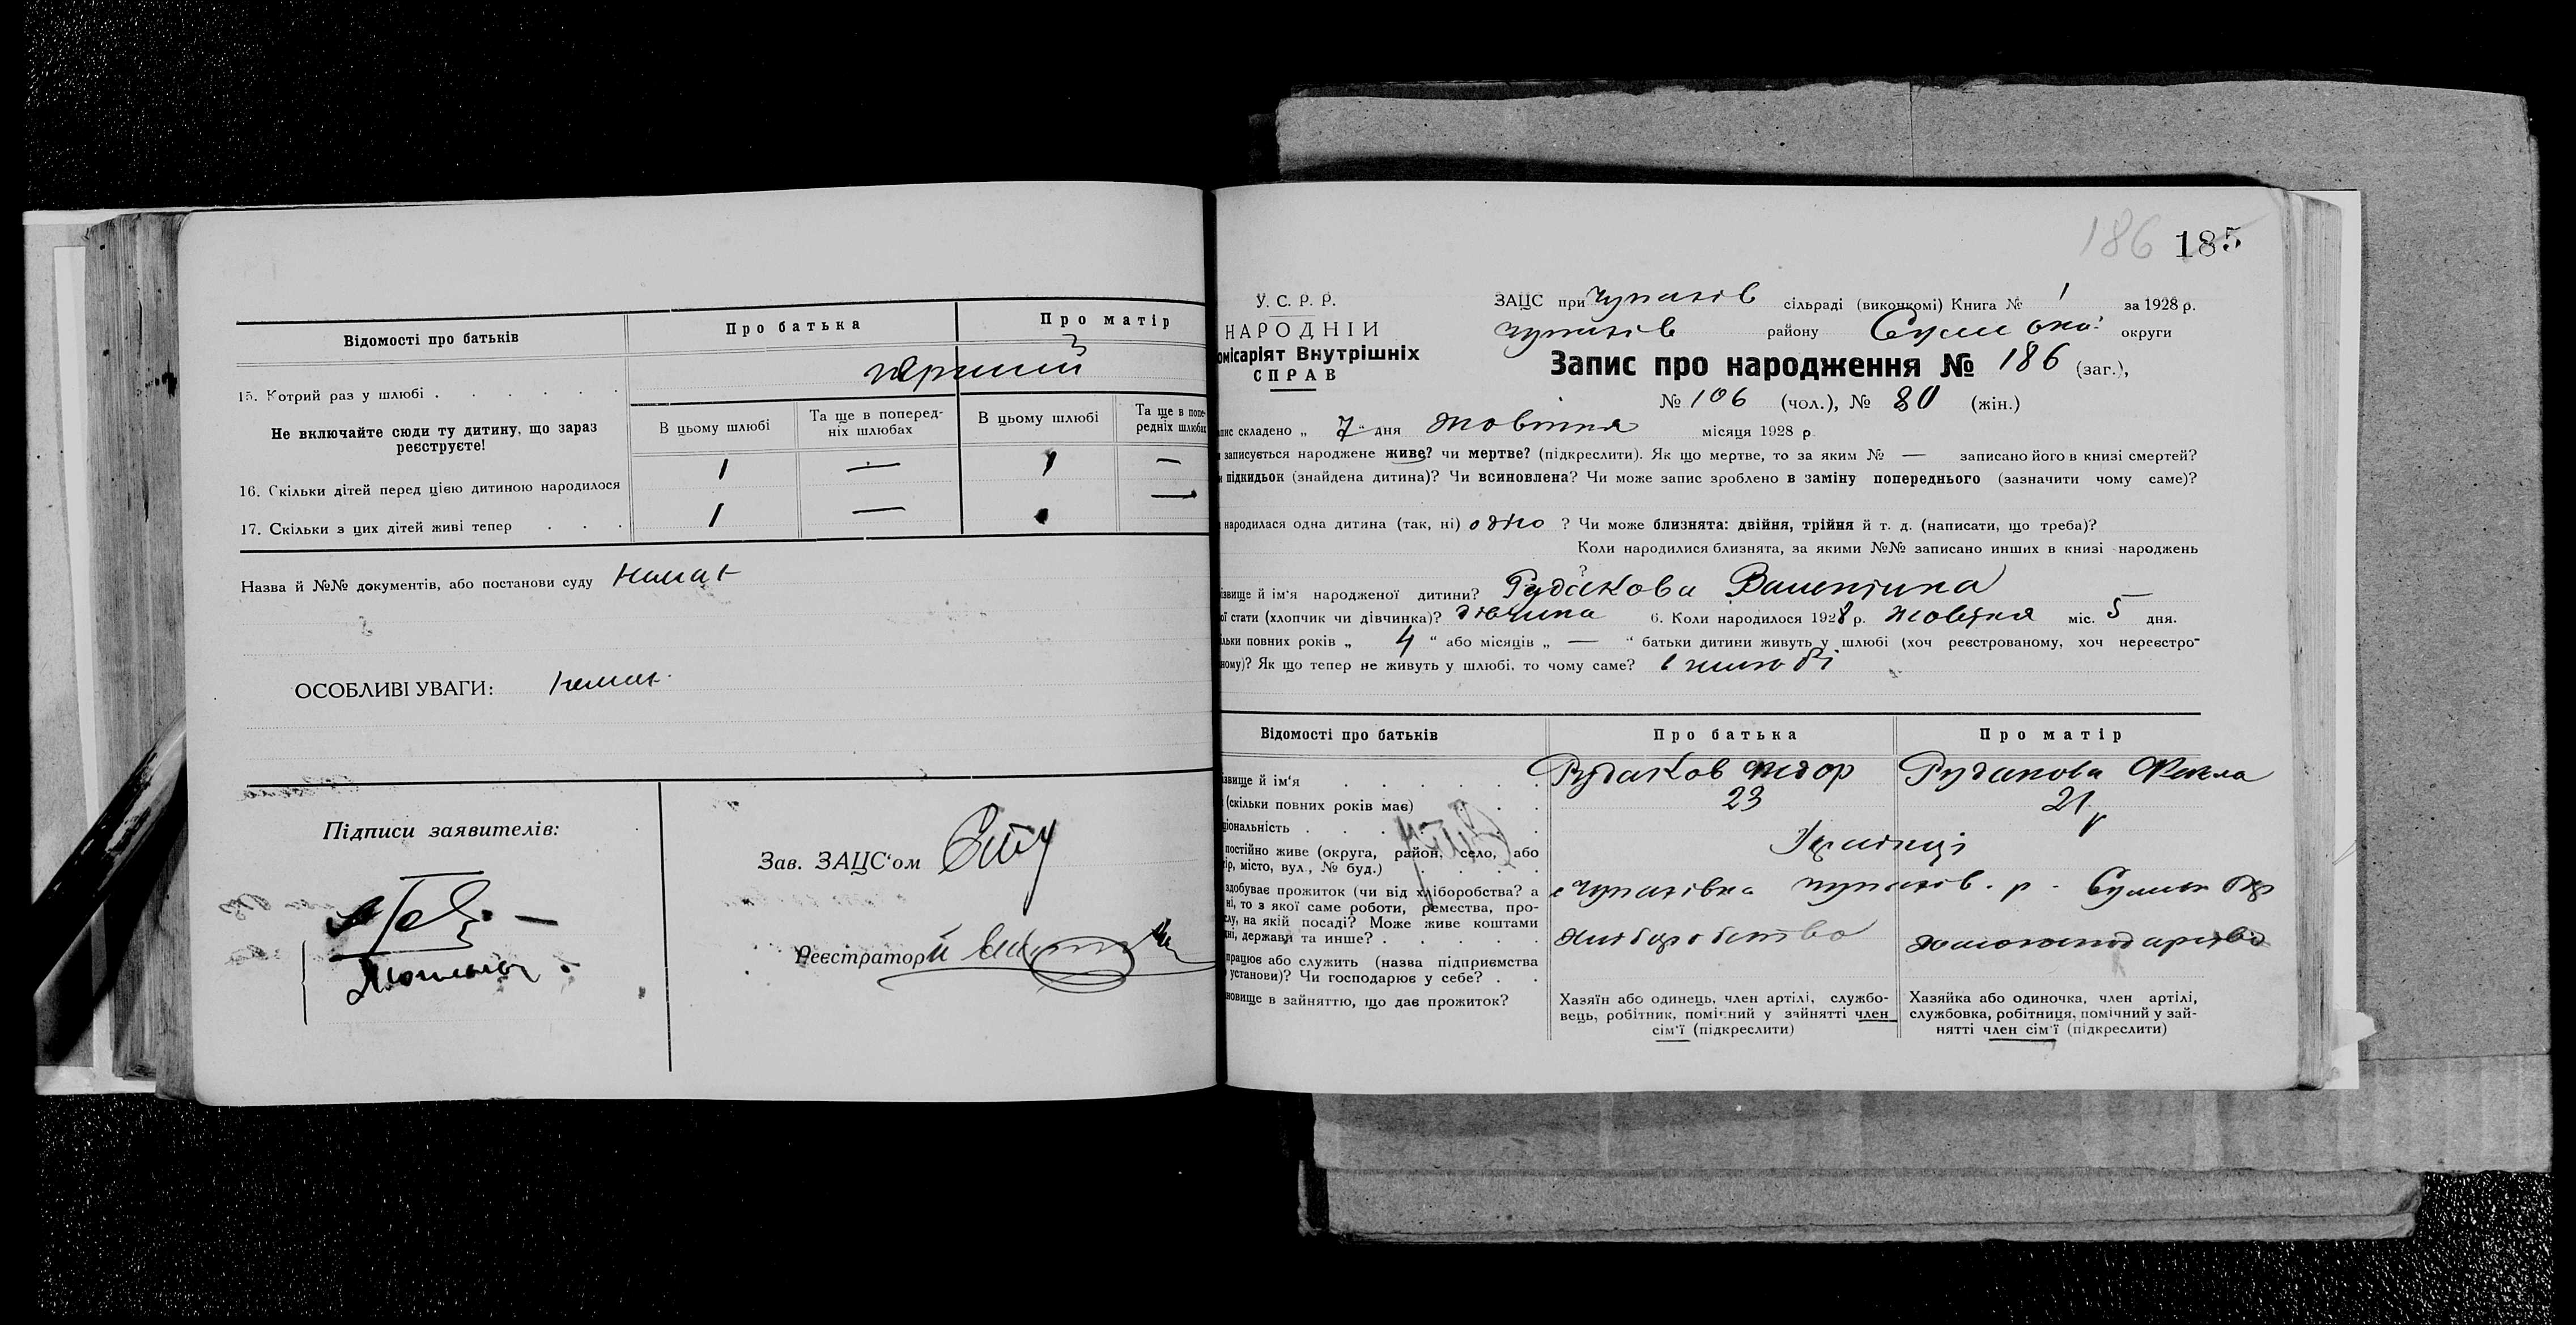 Відомості про батьків
Про батька
Про матір
15. Котрий раз у шлюбі
перший
Не включайте сюди ту дитину, що зараз реєструєте!
В цьому шлюбі
Та ще в поперед-
ніх шлюбах
В цьому шлюбі
Та ще в попе-
редніх шлюбах
16. Скільки дітей перед цією дитиною народилося 1 — 1 —
17. Скільки з цих дітей живі тепер 1 — —
Назва й №№ документів, або постанови суду немає
ОСОБЛИВІ УВАГИ: немає
Підписи заявителів:
Зав. ЗАЦС'ом
Реєстратор
186 185
У. С. Р. Р.
НАРОДНІЙ
омісаріят Внутрішніх
СПРАВ
ЗАЦС при Чупахів сільраді (виконкомі) Книга № 1 за 1928 р.
Чупахів району Сумської округи
Запис про народження № 186 (заг.),
№ 106 (чол.), № 80 (жін.)
пис складено „ 7 " дня жовтня місяця 1928 р
записується народжене живе? чи мертве? (підкреслити). Як що мертве, то за яким № — записано його в книзі смертей?
и підкидьок (знайдена дитина)? Чи всиновлена? Чи може запис зроблено в заміну попереднього (зазначити чому саме)?
народилася одна дитина (так, ні) одно ? Чи може близнята: двійня, трійня й т. д. (написати, що треба)?
Коли народилися близнята, за якими №№ записано инших в книзі народжень
?
ізвище й ім'я народженої дитини? Рудакова Валентина
ої стати (хлопчик чи дівчинка)? дівчина 6. Коли народилося 1928 р. жовтня міс. 5 дня.
льки повних років „ 4 " або місяців „ — " батьки дитини живуть у шлюбі (хоч реєстрованому, хоч нереєстро-
ному)? Як що тепер не живуть у шлюбі, то чому саме? в шлюбі
Відомості про батьків
Про батька
Про матір
ізвище й ім'я
Рудаков Федор
Рудакова Фекла
(скільки повних років має)
23
21
ціональність
Українці
постійно живе (округа, район, село, або
ір, місто, вул., № буд.)
с Чупахівка Чупахів. р. Сумськ окр
здобуває прожиток (чи від хліборобства? а
ні, то з якої саме роботи, ремества, про-
слу, на якій посаді? Може живе коштами
дні, держави та инше?
хліборобство
домогосподарство
працює або служить (назва підприємства
установи)? Чи господарює у себе?
новище в зайняттю, що дає прожиток?
Хазяїн або одинець, член артілі, службо-
вець, робітник, помічний у зайнятті член
сім'ї (підкреслити)
Хазяйка або одиночка, член артілі,
службовка, робітниця, помічний у зай-
нятті член сім'ї (підкреслити)